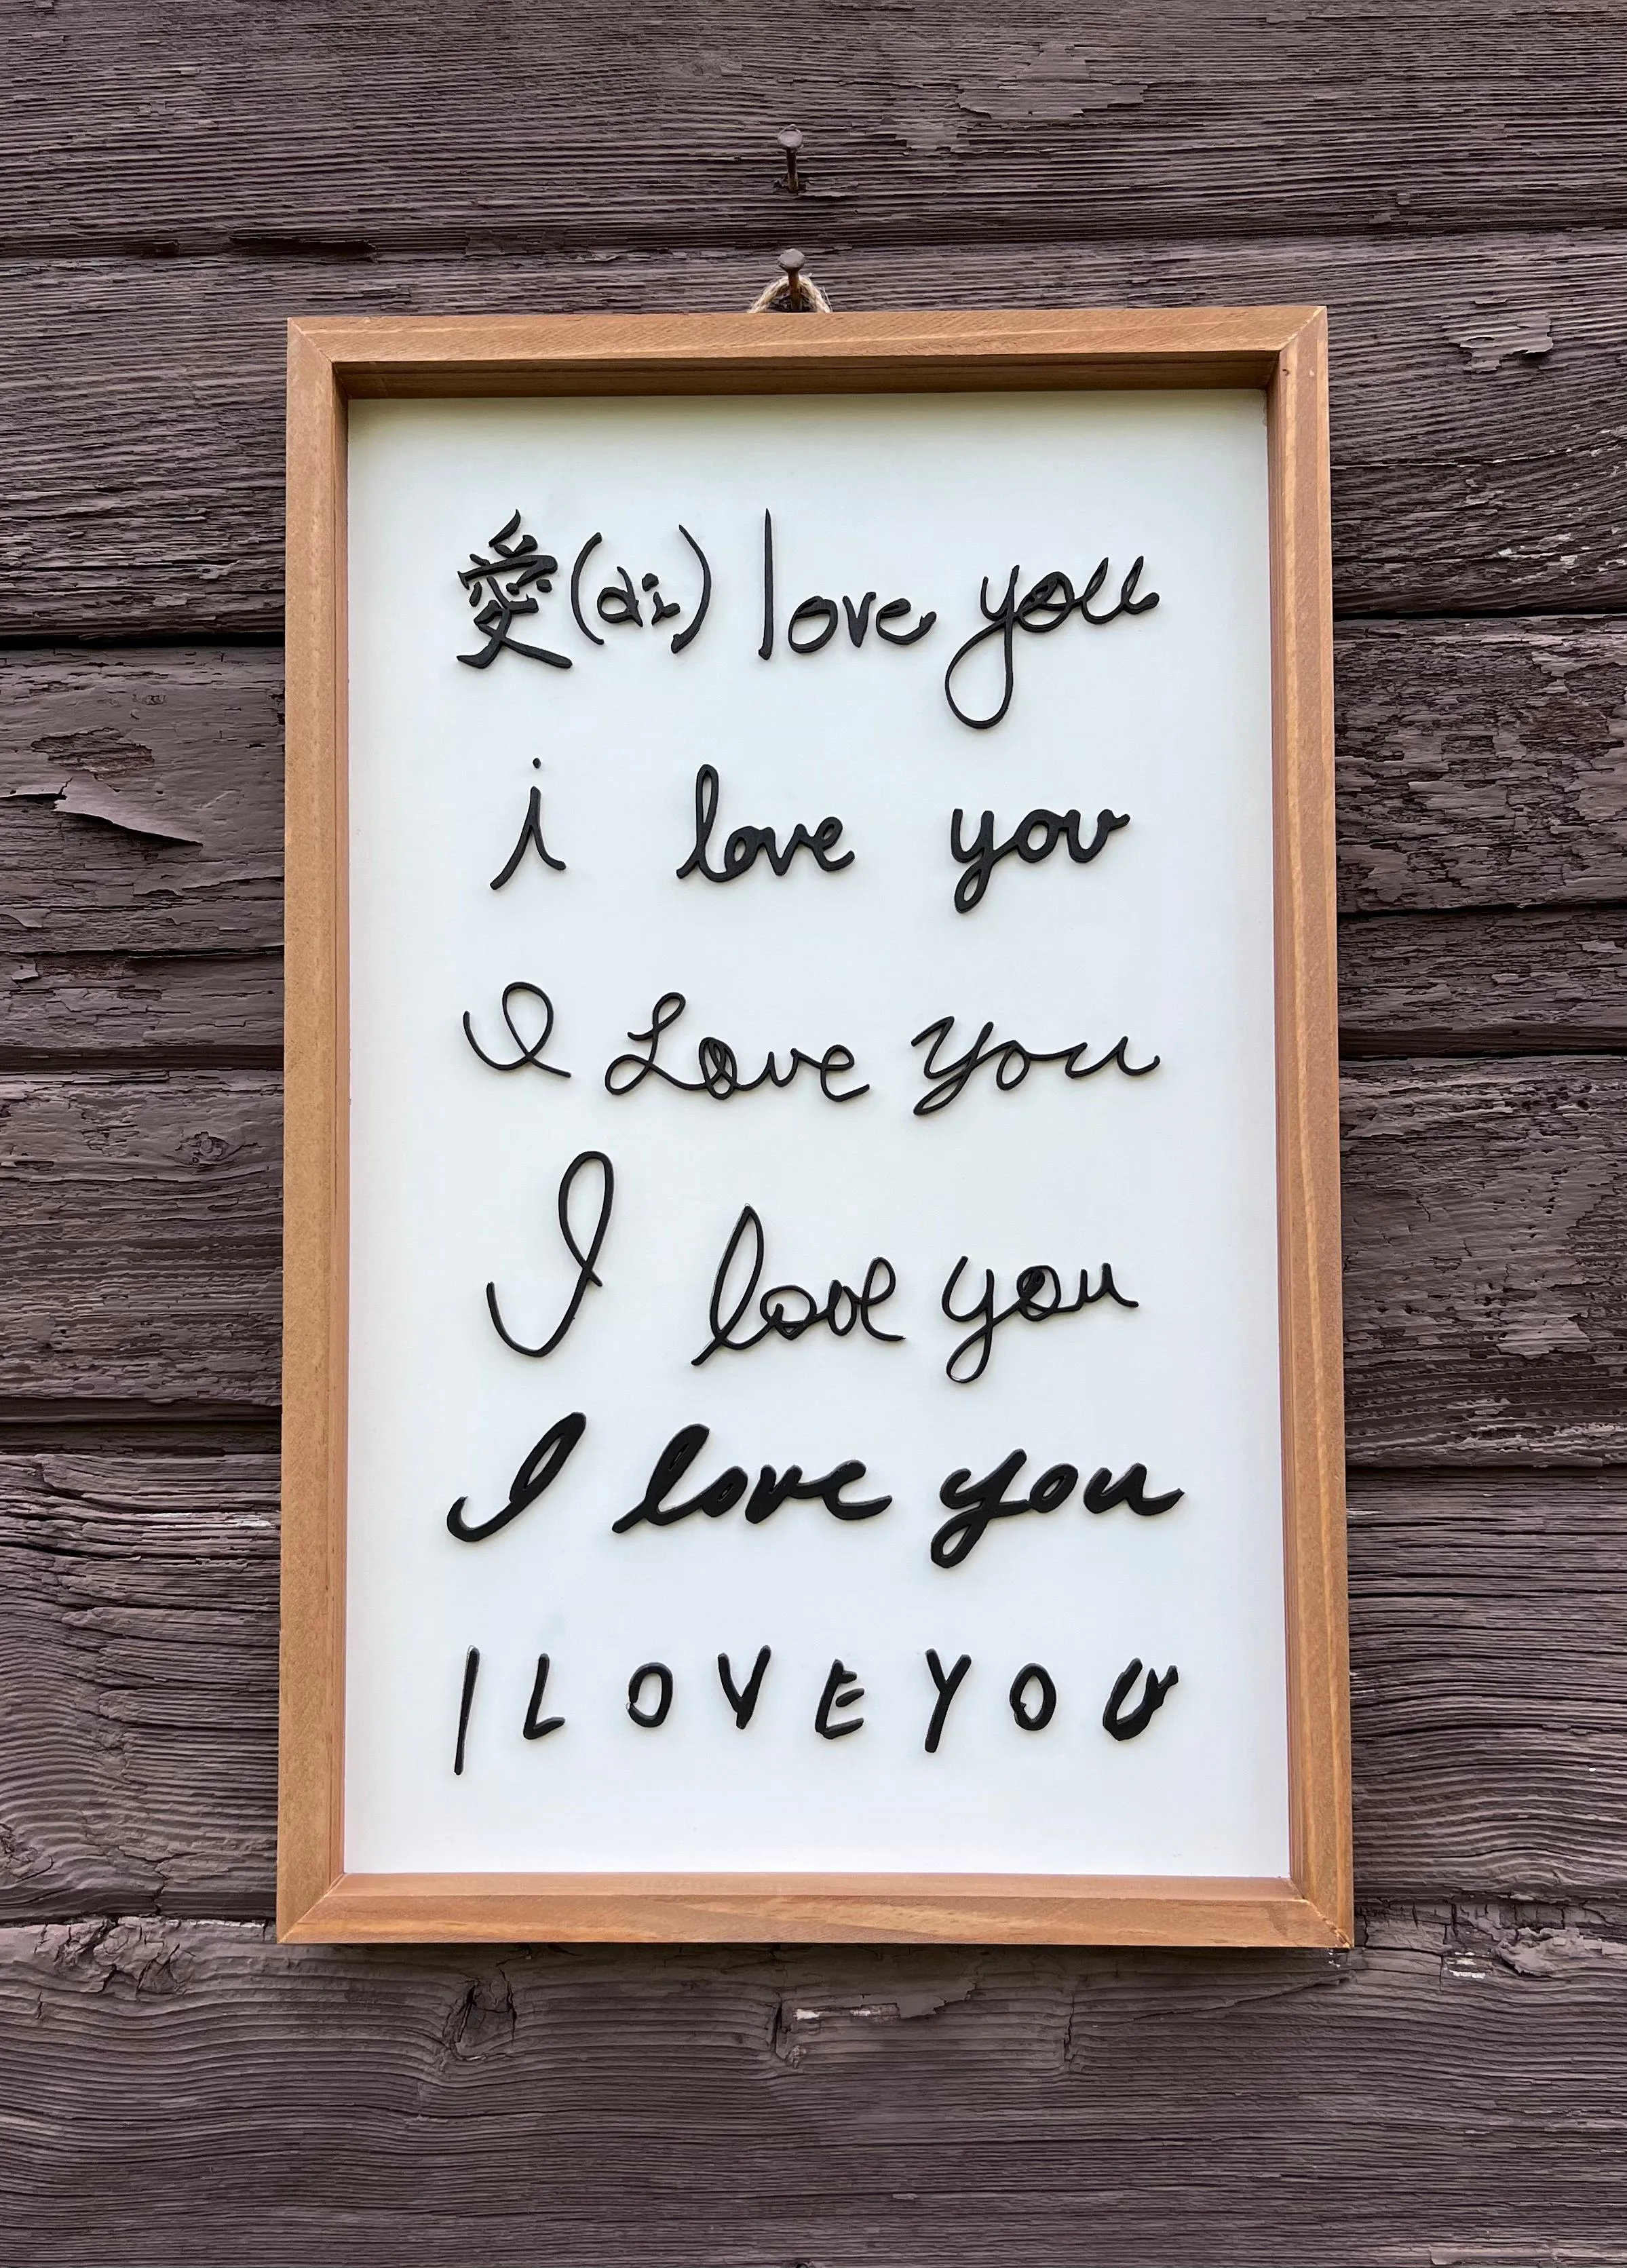 愛(ai) love you
i love you
I Love You
I love you
I love you
I LOVE YOU